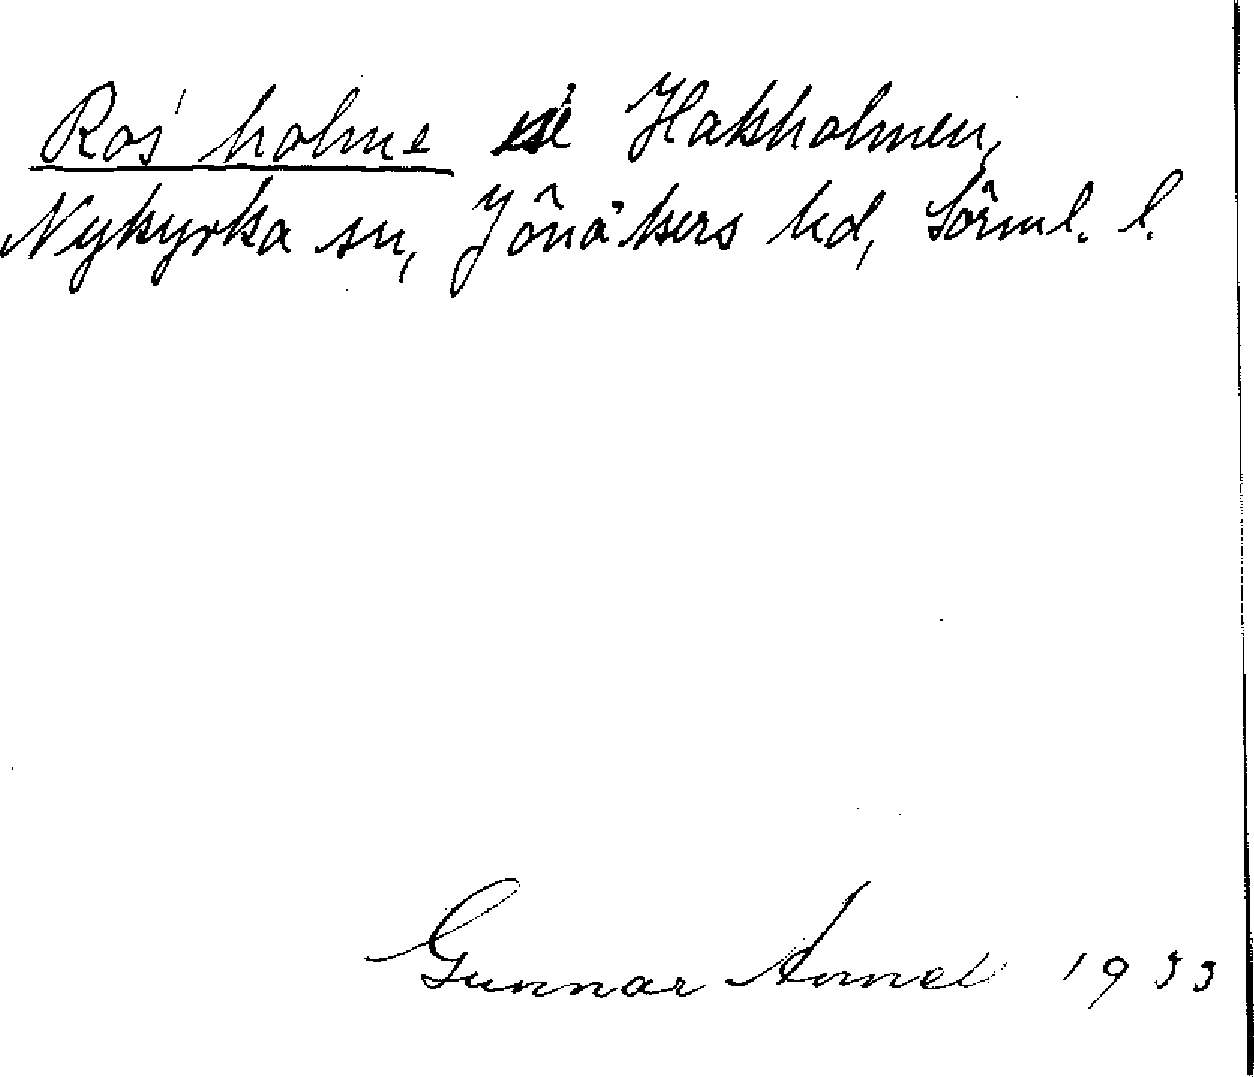 Ros' holme se Hakholmen,
Nykyrka sn, Jönåkers hd, Sörml. l.
Gunnar Annel 1933